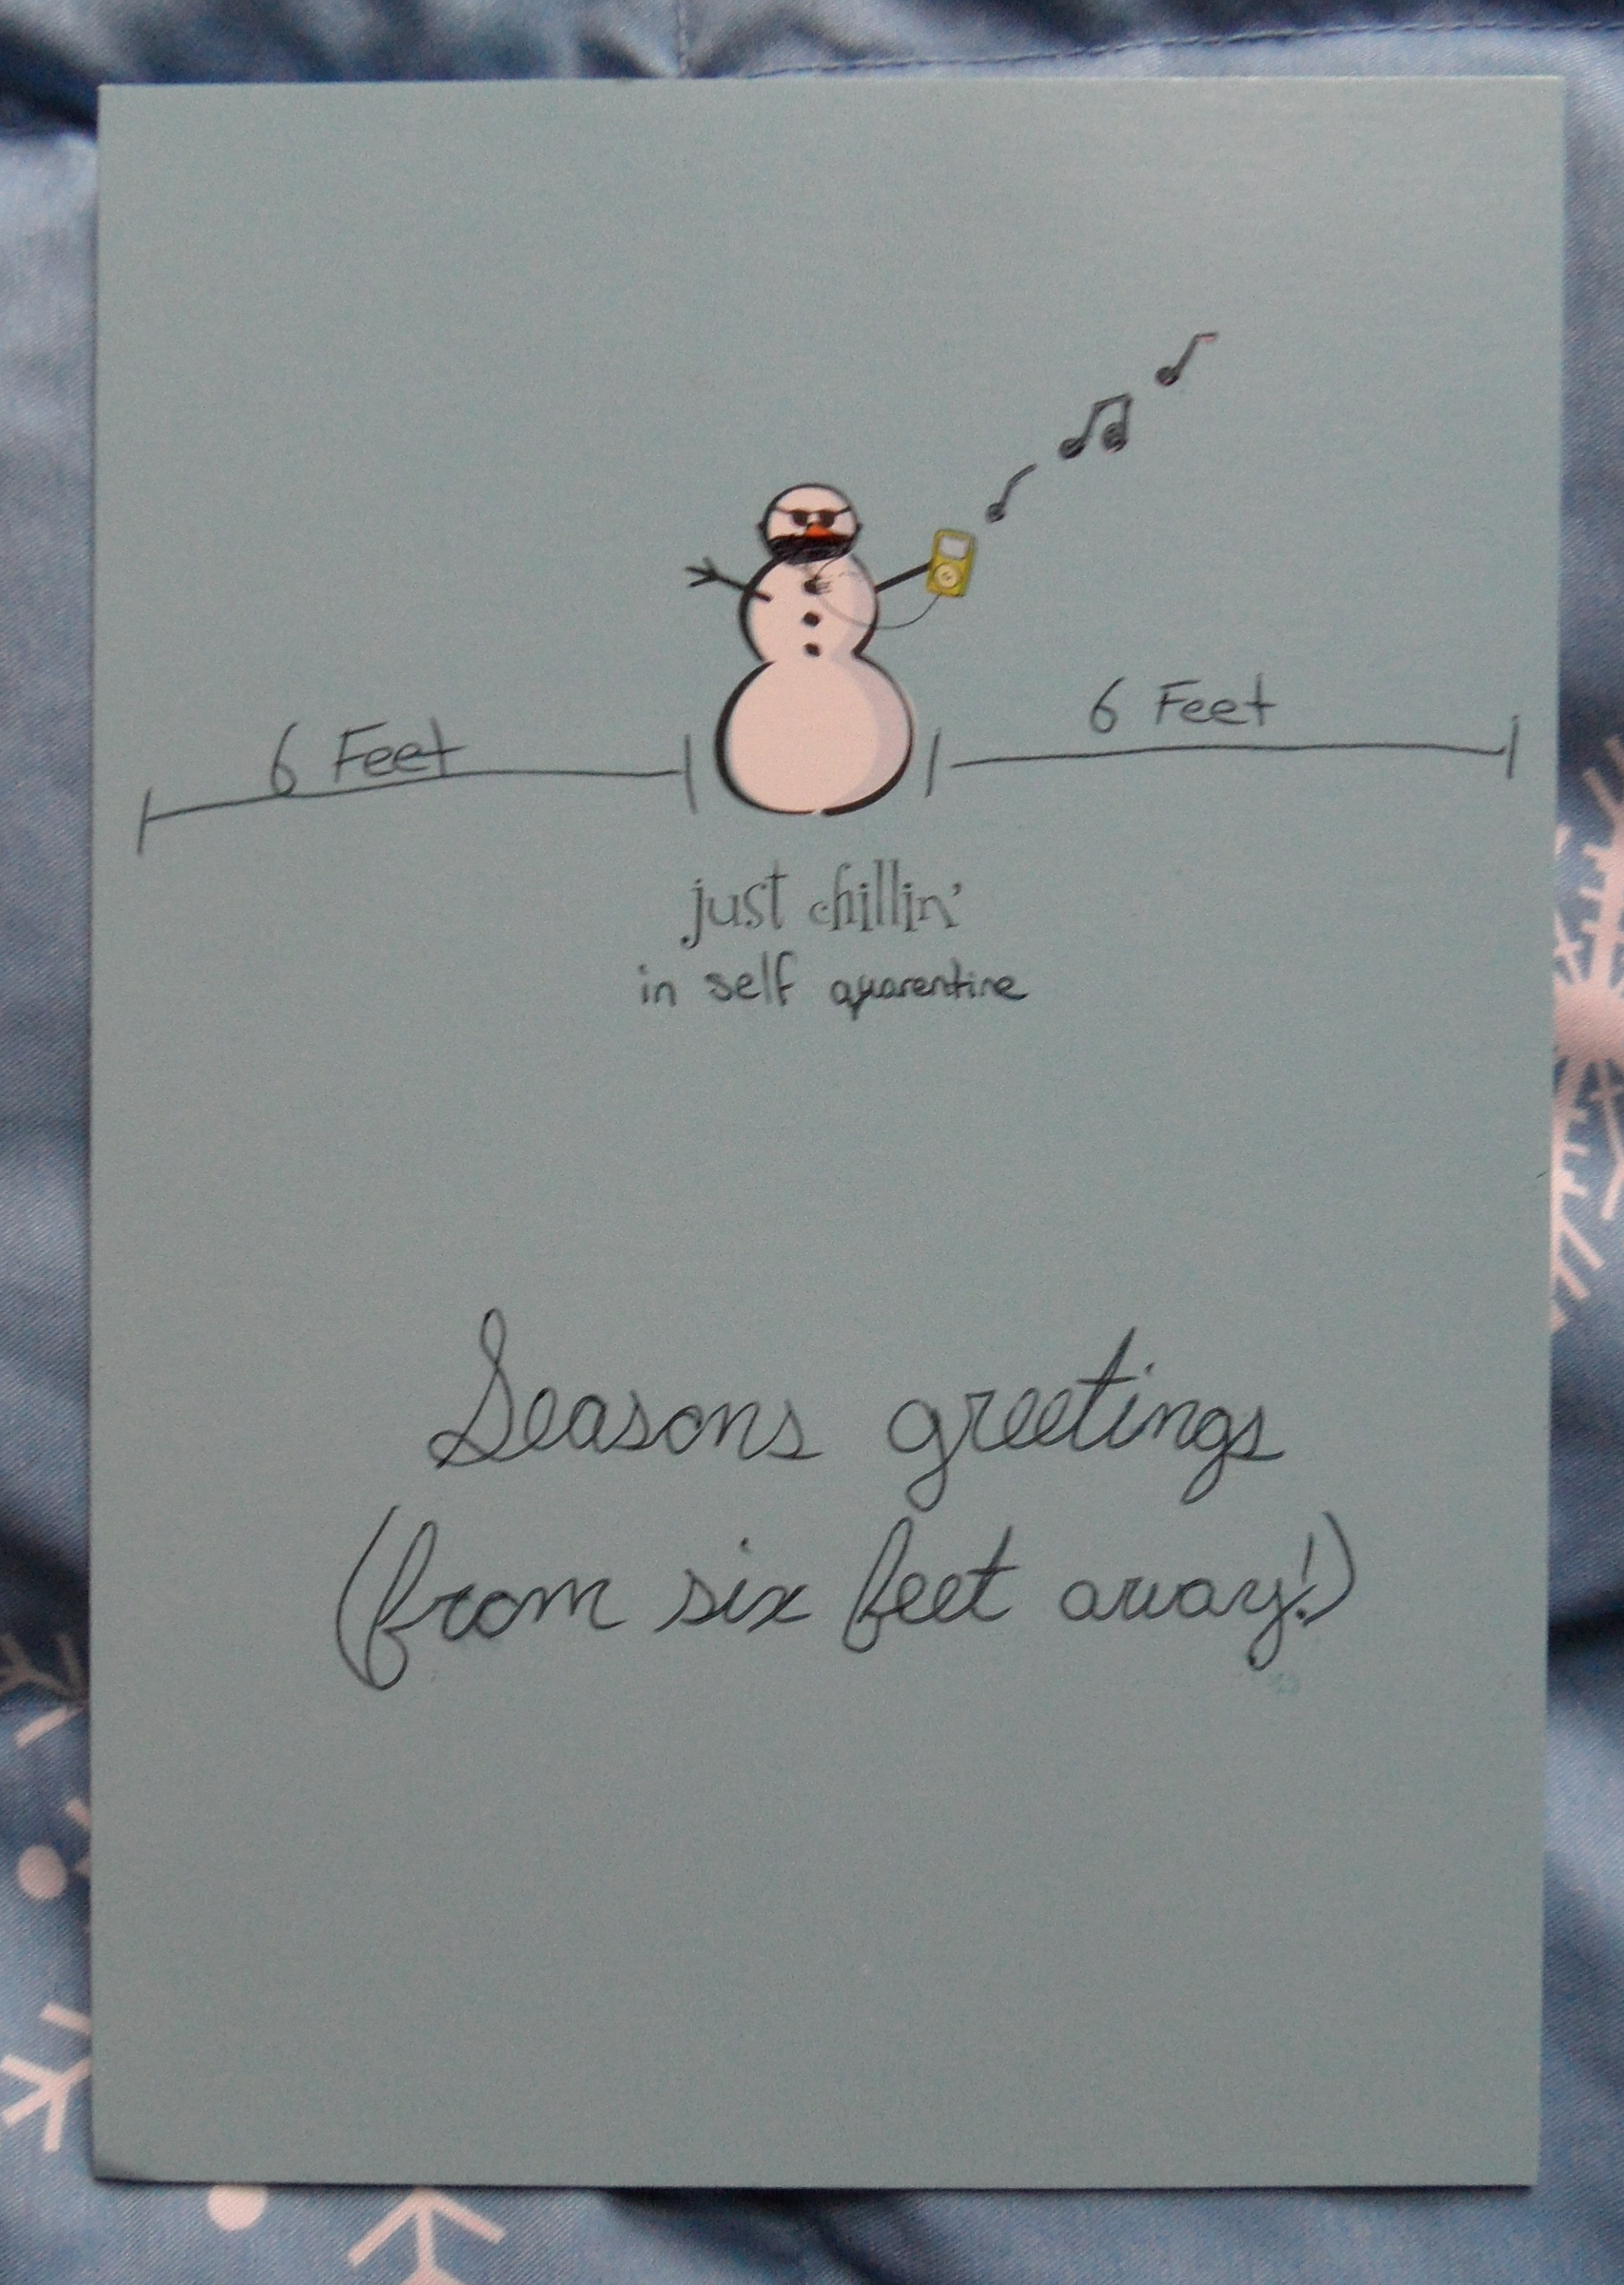 6 Feet
6 Feet
just chillin'
in self quarentine
Seasons greetings
(from six feet away!)